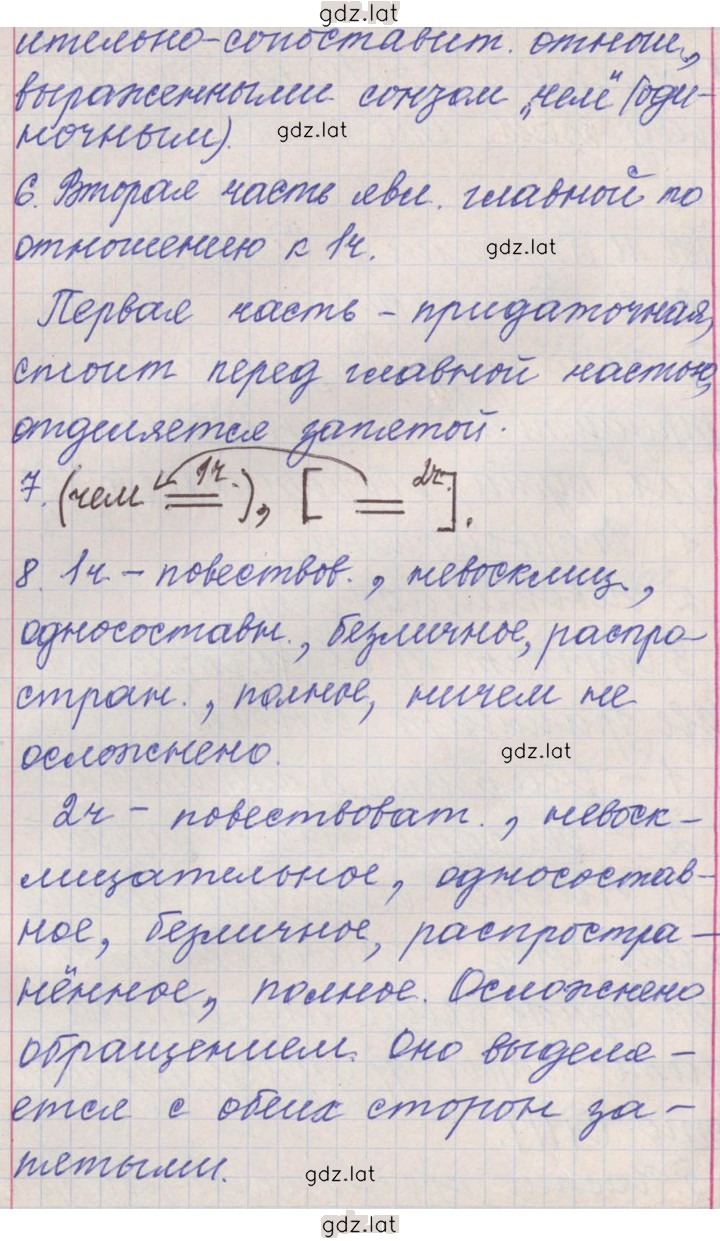 gdz.lat
ительно-сопоставит. отнош.,
выраженными союзом „чем" (оди-
ночным).
gdz.lat
6. Вторая часть явл. главной по
отношению к 1ч.
gdz.lat
Первая часть – придаточная,
стоит перед главной частью,
отделяется запятой.
7. (чем 1ч.), [ 2ч. ].
8. 1ч – повествов., невосклиц.,
односоставн., безличное, распро-
стран., полное, ничем не
осложнено.
gdz.lat
2ч – повествоват., невоск-
лицательное, односостав-
ное, безличное, распростра-
нённое, полное. Осложнено
обращением. Оно выделя-
ется с обеих сторон за-
пятыми.
gdz.lat
gdz.lat